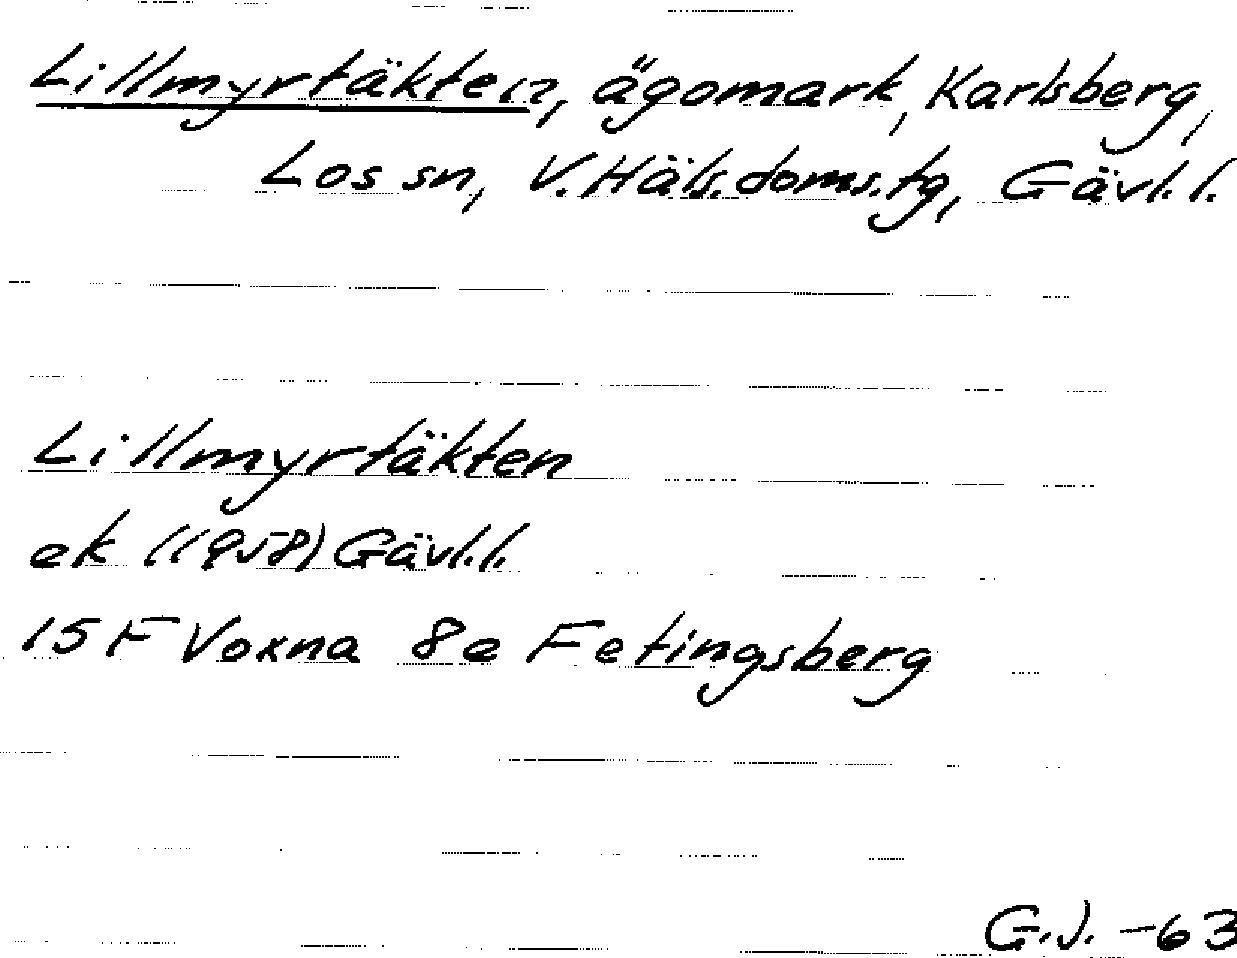 Lillmyrtäkten, ägomark, Karlsberg,
Los sn, V. Häls. doms. tg, Gävl. l.
Lillmyrtäkten
ek (1958) Gävl. l.
15 F Voxna 8e Fetingsberg
G.J. -63